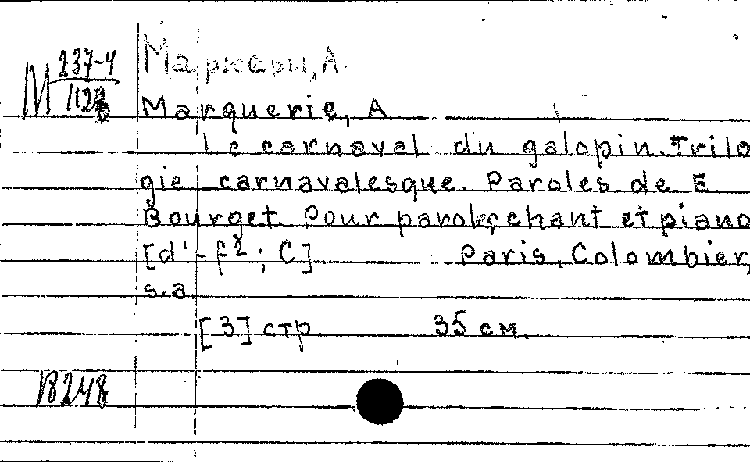 М 237-4
Маркери, А.
Marquerie, A
Le carnaval du galopin. Trilo
gie carnavalesque. Paroles de E
Bourget. Pour paroles, chant et piano
[d'-f²; C] Paris, Colombier,
s.a.
[3] стр 35 см.